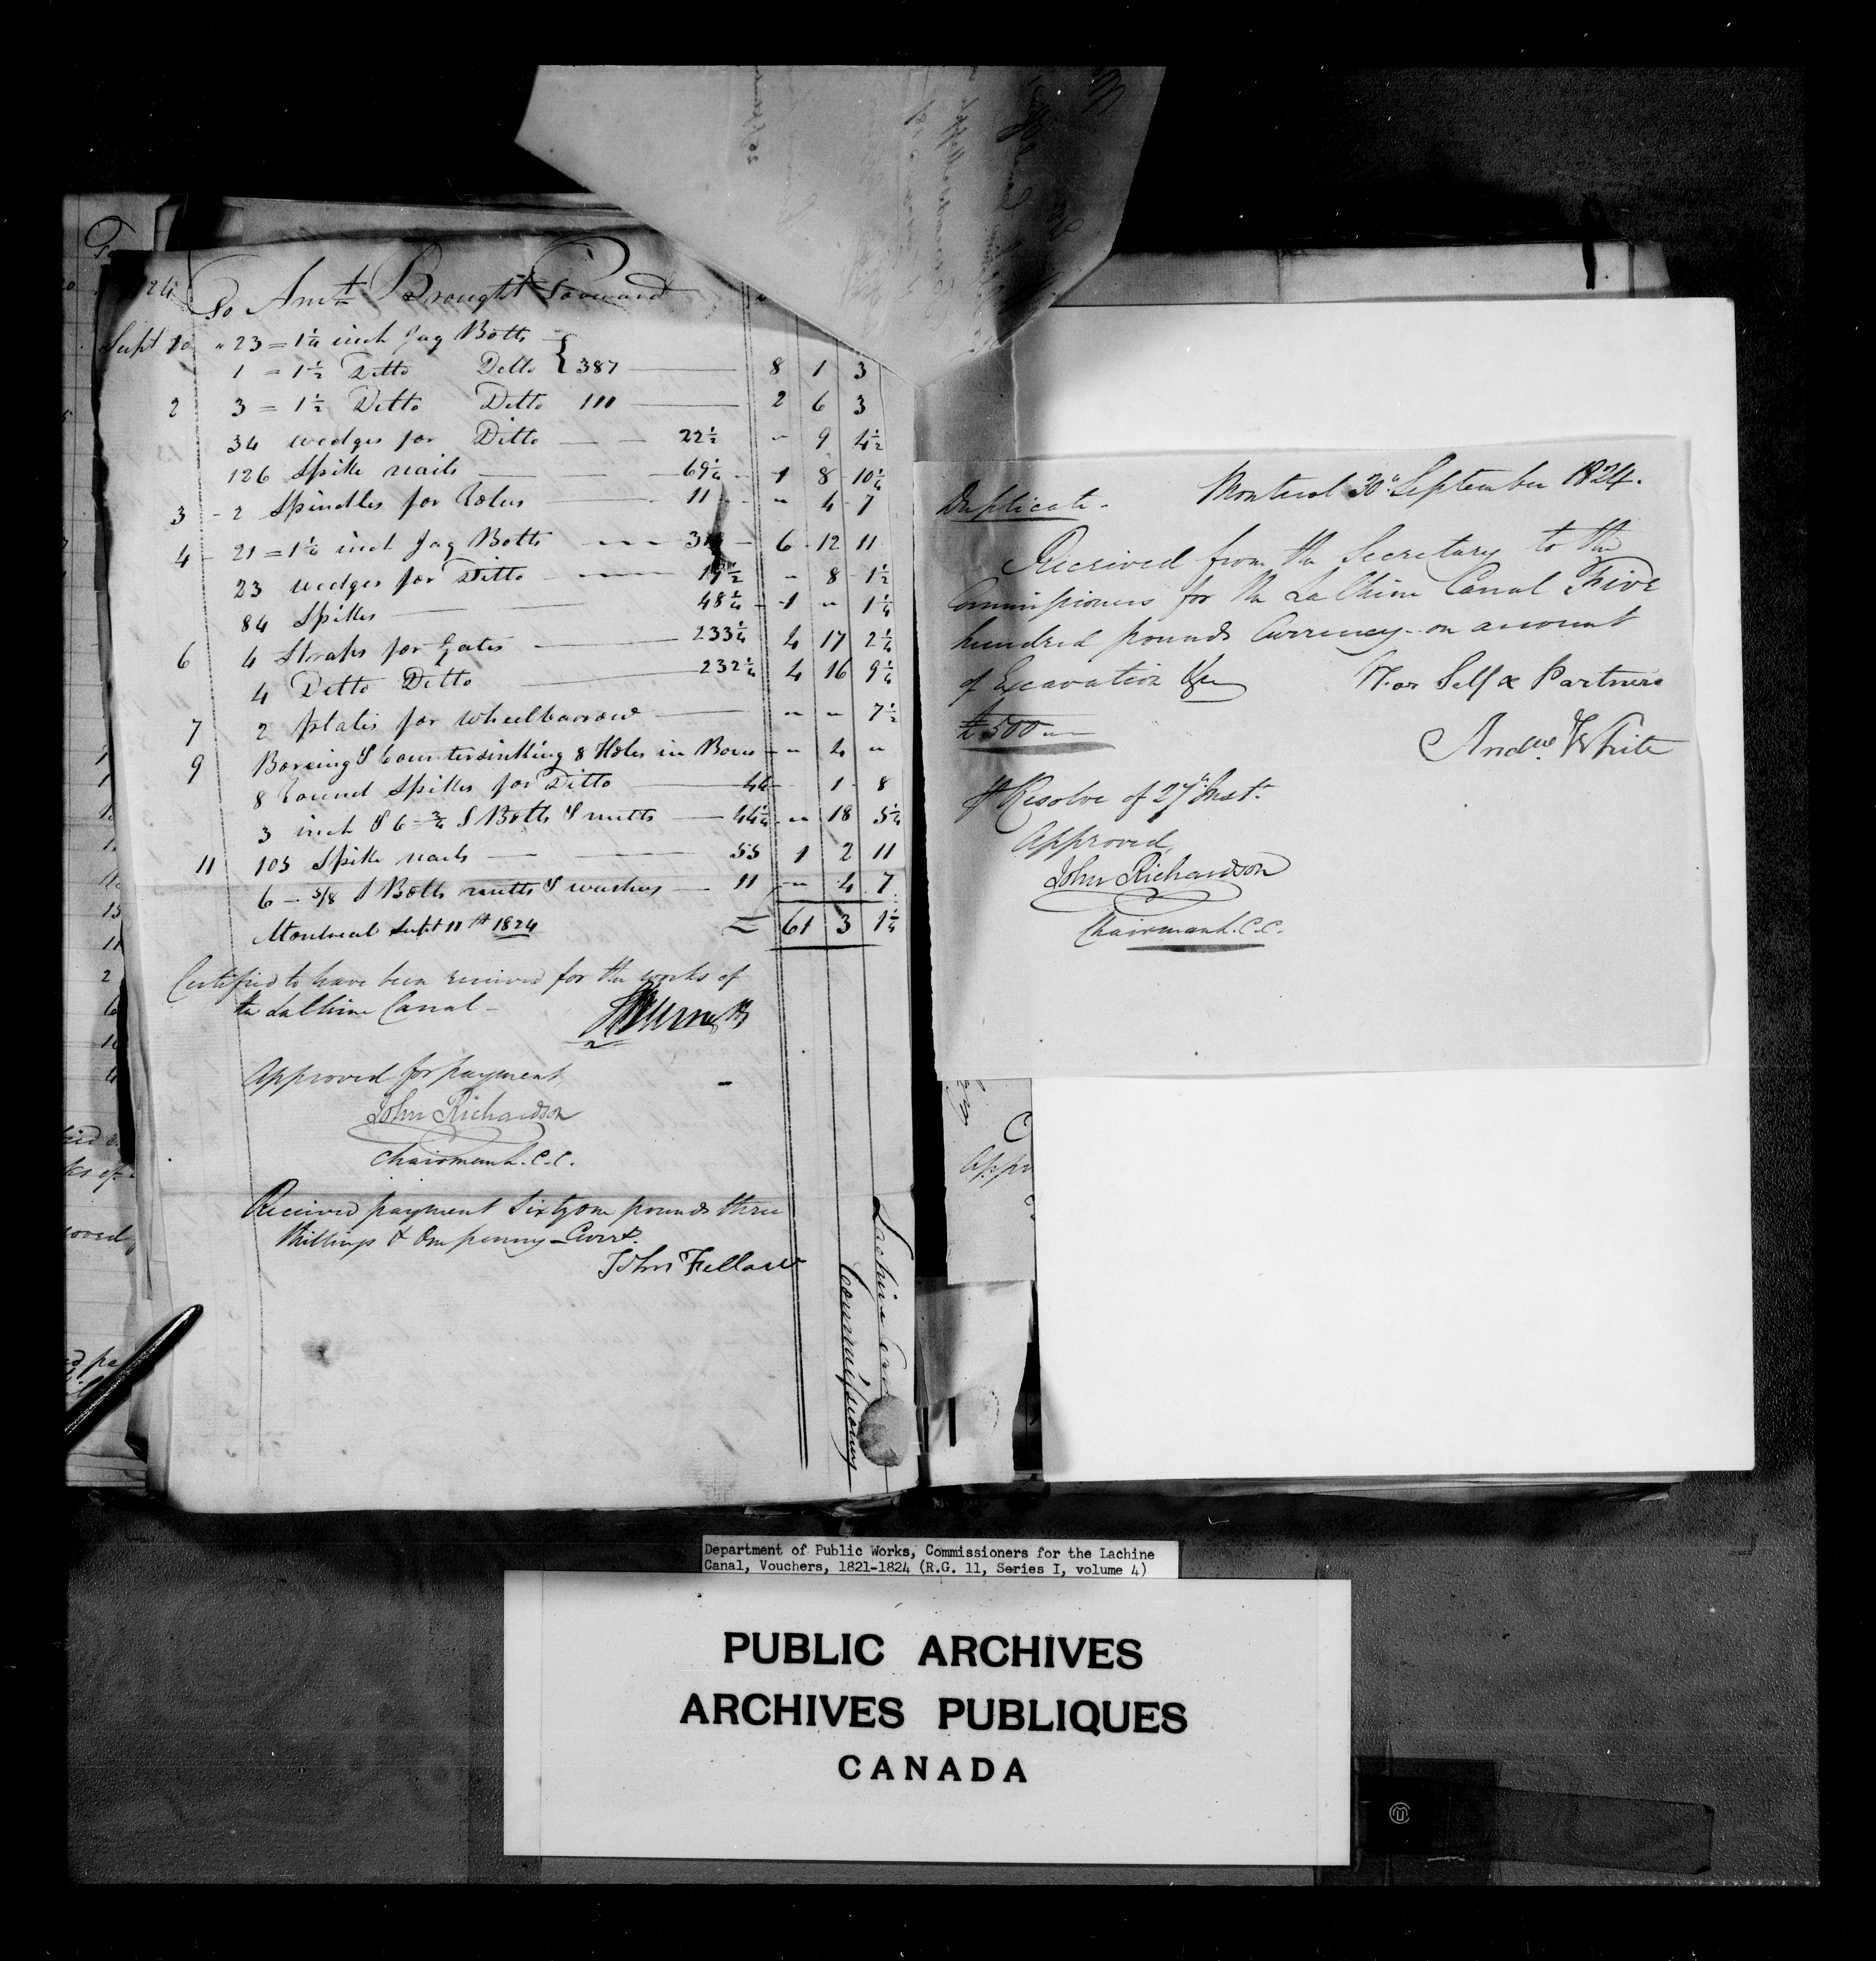 To Amt Brought Forward
Sept 10 " 23 = 1¼ inch Jag Bolts
1 = 1½ Ditto Ditto { 387 8 1 3
2 3 = 1½ Ditto Ditto 111 2 6 3
34 wedges for Ditto 22½ " 9 4½
126 Spike nails 69¼ 1 8 10¼
3 2 Spindles for 11 " 4 7
4 21 = 1¼ inch Jag Bolts 6 12 11
23 wedges for Ditto 19½ " 8 1½
84 Spikes 48¼ 1 " 1¼
6 4 Straps for Gates 233¼ 4 17 2¼
4 Ditto Ditto 232¼ 4 16 9¼
7 2 plates for wheelbarrow " " 7½
9 Boreing & Countersinking 8 Holes in " 4 "
8 Round Spikes for Ditto 4 1 8
3 inch & 6 = ¾ S Bolts & nutts 44¼ " 18 5¼
11 105 Spike nails 55 1 2 11
6 - 5/8 S Bolts nutts & washers 11 " 4 7
Montreal Sept 11th 1824 61 3 1¼
Certified to have been received for the works of
the La Chine Canal -
Approved for payment
John Richardson
Chairman L.C.C.
Received payment Sixty one pounds three
shillings & One penny Curry.
John Fellows
Lachine
Commissioners
Duplicate. Montreal 30th September 1824.
Received from the Secretary to the
Commissioners for the La Chine Canal Five
hundred pounds Currency on account
of Excavation &c
For Self & Partners
£500
Andw. White
pr Resolve of 27th Inst.
Approved,
John Richardson
Chairman L.C.C.
Department of Public Works, Commissioners for the Lachine
Canal, Vouchers, 1821-1824 (R.G. 11, Series I, volume 4)
PUBLIC ARCHIVES
ARCHIVES PUBLIQUES
CANADA